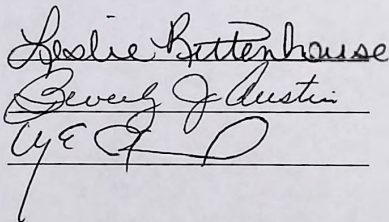 Leslie Rittenhouse
Beverly J Austin